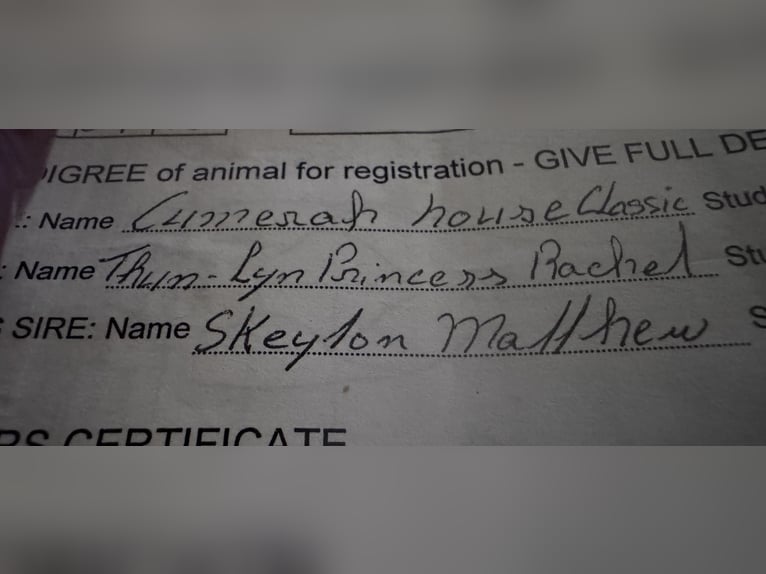 DIGREE of animal for registration - GIVE FULL DE
.: Name Cumerah house Classic Stud
: Name Thun-Lyn Princess Rachel Stu
S SIRE: Name Skeyton Matthew S
RS CERTIFICATE